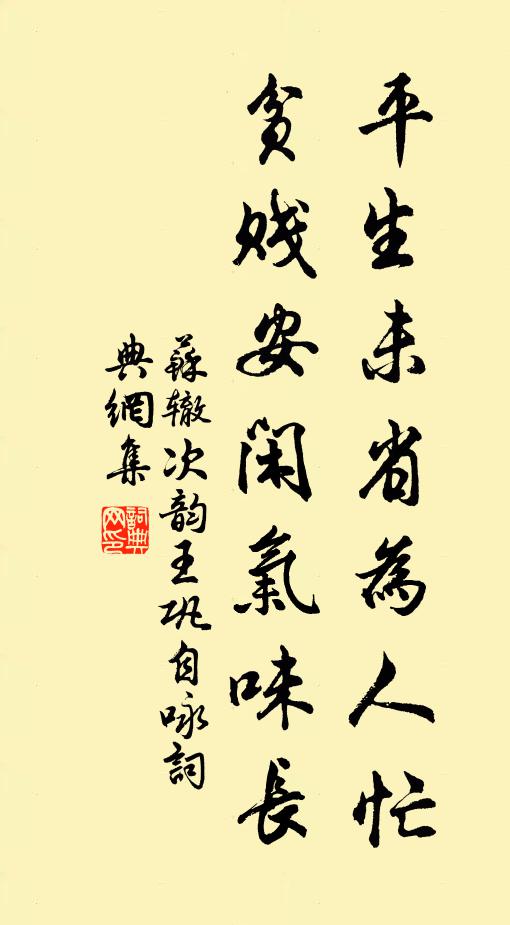 平生未省為人忙
貧賤安閑氣味長
蘇轍次韵王巩自咏詞
典網集
詞典
网印